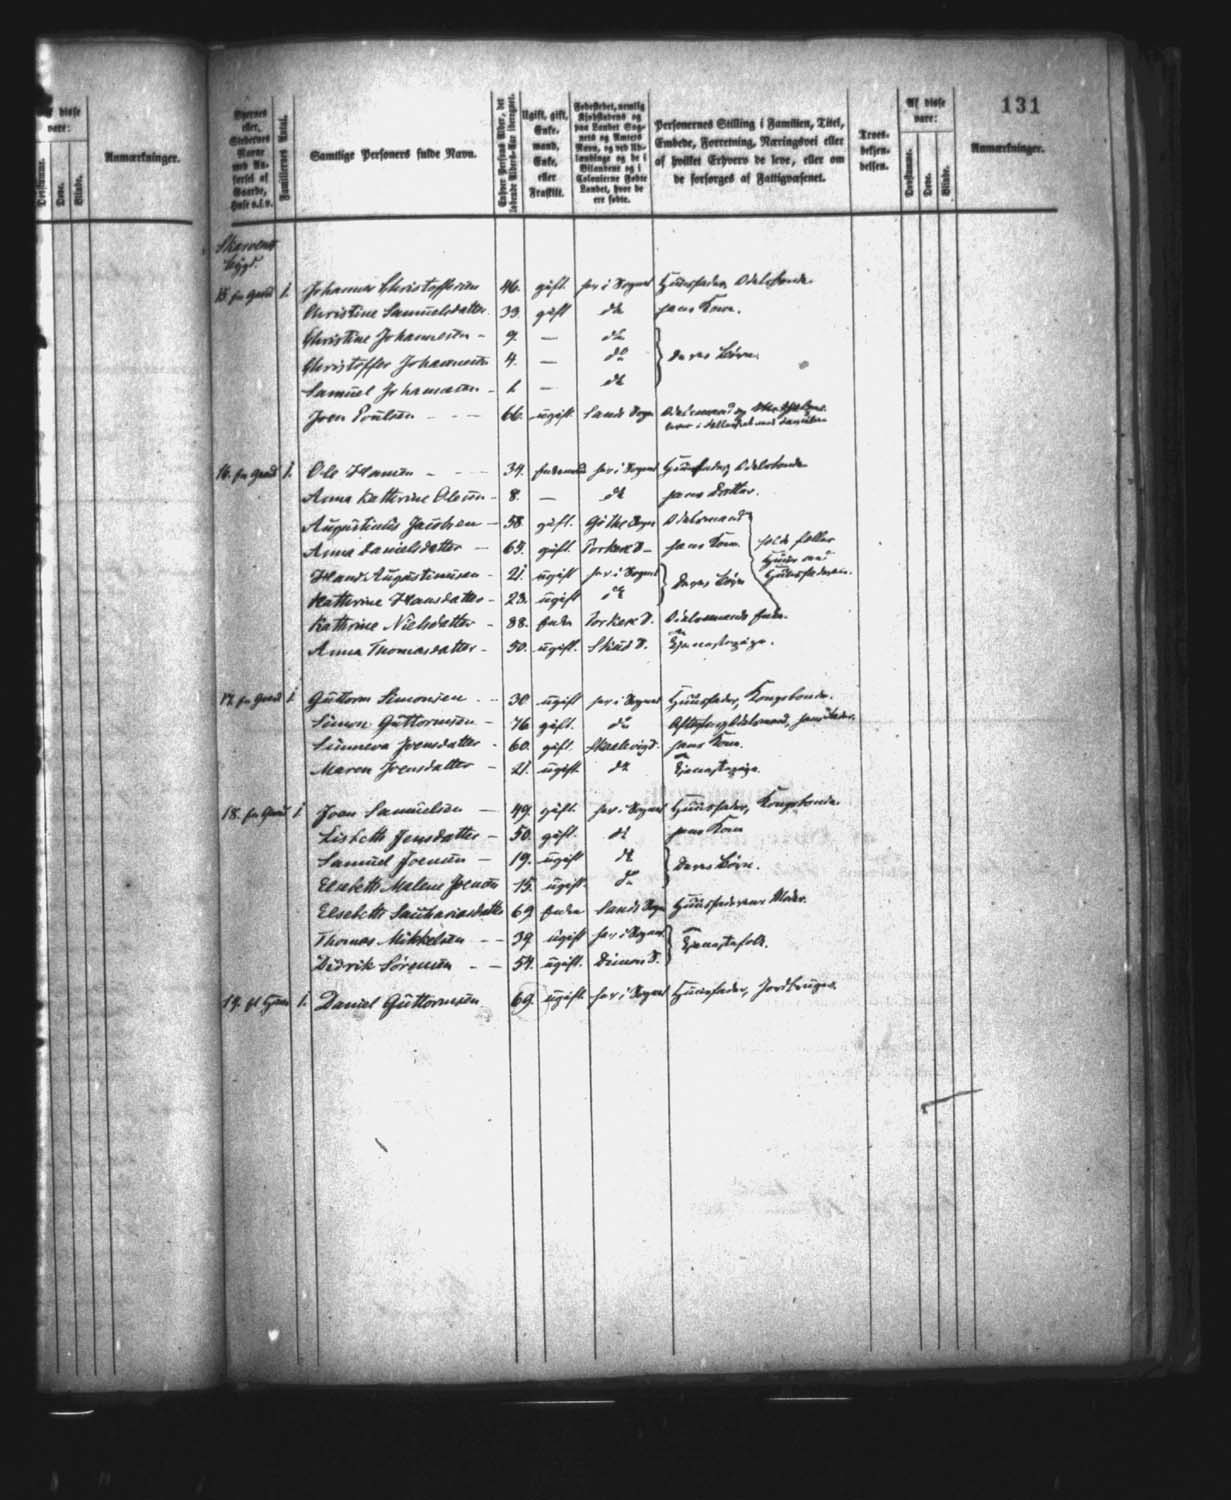 131
Af disse
være:
Døvstumme.
Døve.
Blinde.
Anmærkninger.
Byernes
eller
Stedernes
Navne
med An-
førsel af
Gaarde,
Huse o.s.v.
Familiernes Antal.
Samtlige Personers fulde Navn.
Enhver Persons Alder, det
løbende Alders-Aar iberegnet.
Ugift, gift,
Enke-
mand,
Enke,
eller
Fraskilt.
Fødestedet, nemlig
Kjøbstadens og
paa Landet Sog-
nets og Amtets
Navn, og ved Ud-
lændinge og de i
Bilandene og i
Colonierne Fødte
Landet, hvor de
ere fødte.
Personernes Stilling i Familien, Titel,
Embede, Forretning, Næringsvei eller
af hvilket Erhverv de leve, eller om
de forsørges af Fattigvæsenet.
Troes-
bekjen-
delsen.
Af disse
være:
Døvstumme.
Døve.
Blinde.
Anmærkninger.
bygd.
15 en Gaard 1. Johannes Christoffersen 46. gift her i Sognet Huusfader, Odelsbonde
Christine Samuelsdatter 33. gift do hans Kone.
Christine Johannesen - 9. — do
Christoffer Johannesen 4. — do deres Børn.
Samuel Johannesen - 1 — do
Joen Poulsen - - - 66. ugift Sands Sogn Odelsmand og
16. en Gaard 1. Ole Hansen - - - 34. Enkemand her i Sognet Huusfader, Odelsbonde
Anna Kathrine Olesen - 8. — do hans Datter.
Augustinus Jacobsen - 58. gift. Gøthe Sogn Odelsmand
Anna Danielsdatter - 65. gift. Porkere S. - hans Kone
Hans Augustinusen - 21. ugift her i Sognet deres Børn
Kathrine Hansdatter - 23. ugift do
Kathrine Nielsdatter - 88. Enke Porkere S. Odelsmands Enke.
Anna Thomasdatter - 50. ugift. S. Tjenestepige.
17. en Gaard 1. Guttorm Simonsen - - 30 ugift her i Sognet Huusfader, Kongsbonde.
Simon Guttormsen - 76 gift. do
Sunneva Joensdatter - 60. gift. hans Kone.
Maren Joensdatter - 21. ugift. do Tjenestepige.
18. en Gaard 1 Joan Samuelsen - 49. gift. her i Sognet Huusfader, Kongsbonde.
Lisbeth Jensdatter - 50. gift. do hans Kone
Samuel Joensen - 19. ugift do deres Børn.
Elsebeth Malene Joensen 15. ugift. do
Elsebeth Sachariasdatter 69 Enke Sands Sogn Huusfaderens Moder.
Thomas Mikkelsen - - 39 ugift her i Sognet Tjenestefolk.
Didrik Sørensen - - 54. ugift. S.
19. et Huus 1. Daniel Guttormsen 69. ugift. her i Sognet Huusfader, Jordbruger.